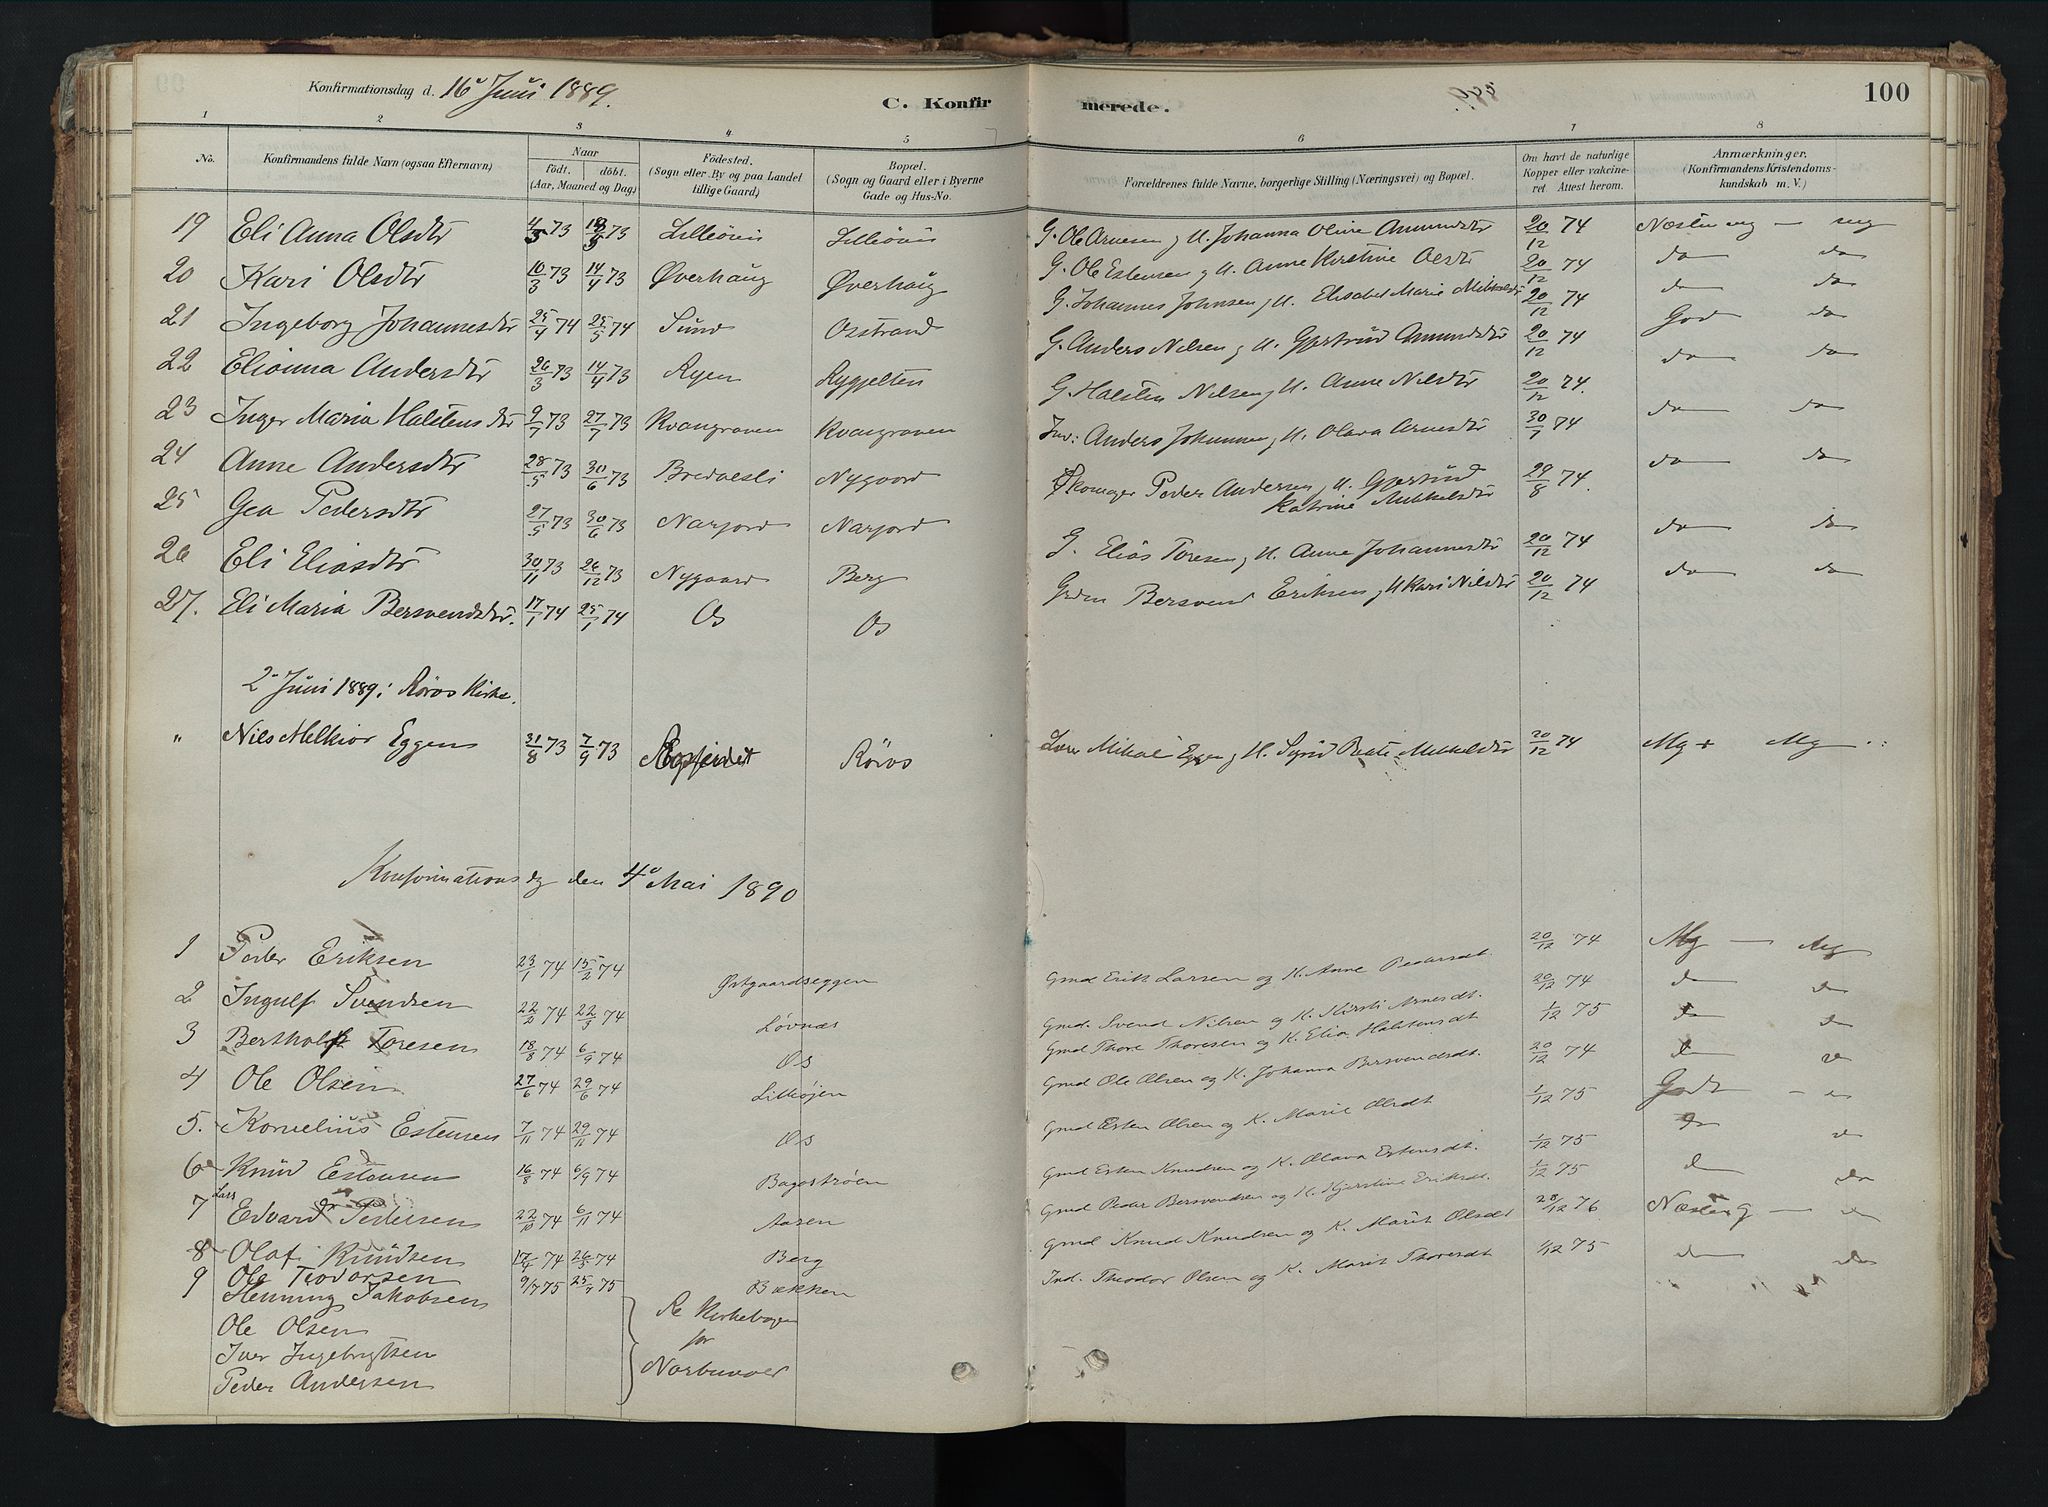 Konfirmationsdag d. 16 Juni 1889.
C. Konfirmerede.
100
1 2 3 4 5 6 7 8
No. Konfirmandens fulde Navn (ogsaa Efternavn) Naar födt. döbt. (Aar, Maaned og Dag) Födested. (Sogn eller By og paa Landet tillige Gaard) Bopæl. (Sogn og Gaard eller i Byerne Gade og Hus-No. Forældrenes fulde Navne, borgerlige Stilling (Næringsvei) og Bopæl. Om havt de naturlige Kopper eller vakcineret. Attest herom. Anmærkninger. (Konfirmandens Kristendomskundskab m. V.)
19 Eli Anna Olsdtr 73 73 G. Ole Arnesen g H. Johanna Oline Amundsdtr 20/12 74
20 Kari Olsdtr 10/3 73 14/4 73 Øverhaug Øverhaug G. Ole Estensen g H. Anne Kirstine Olsdtr 20/12 74 do do
21 Ingeborg Johannesdtr 25/4 74 25/5 74 Sund Osstrand G. Johannes Johnsen g H. Elisabet Marie Mikkelsdtr 20/12 74 do do
22 Elianna Andersdtr 26/3 73 14/4 73 Ryen Rygjelten G. Anders Nilsen g H. Gjertrud Amundsdtr 20/12 74 God do
23 Inger Maria Halstensdtr 9/7 73 27/7 73 Kvangraven Kvangraven G. Halsten Nilsen g H. Anne Nilsdtr 20/12 74. do do
24 Anne Andersdtr 28/5 73 30/6 73 Bredvesli Nygaard Inv: Anders Johannesen g H. Olava Arnesdtr 30/7 74 do do
25 Gea Pedersdtr 27/5 73 30/6 73 Narjord Narjord Skomager Peder Andersen g H. Gjertrud Katrine Mikkelsdtr 29/8 74. do do
26 Eli Eliasdtr 30/11 73 26/12 73 Nygaard Berg G. Elias Toresen g H. Anne Johannesdtr 20/12 74 do do
27. Eli Maria Bersvendsdtr. 17/1 74 25/1 74 Os Os Grdm Bersvend Eriksen g H Kari Nilsdtr 20/12 74 do do
2 Juni 1889 i Røros Kirke.
" Nils Melkior Eggen 31/8 73 7/9 73 Røros Mikal Eggen g H. Sigrid Beate Mikkelsdtr 20/12 74 Mg + Mg
Konfirmationsdg den 4 Mai 1890
1 Peder Eriksen 23/1 74 15/2 74 Østgaardseggen Gmd Erik Larsen og K. Anne Pedersdt. 20/12 74 Mg — Mg
2 Ingulf Svendsen 22/2 74 22/3 74 Løvnæs Gmd. Svend Nilsen og K. Kirsti Arnesdt. 20/12 74 do do
3 Bertholf Toresen 18/8 74 6/9 74 Os Gmd Thore Thoresen og K. Elia Halstensdt 1/12 75 do do
4 Ole Olsen 27/6 74 29/6 74 Lilleøjen Gmd Ole Olsen og K. Johanna Bersvendsdt. 20/12 74 do
5. Kornelius Estensen 7/11 74 29/11 74 Os Gmd Esten Olsen og K. Marie Olsdt 1/12 75 Godt
6 Knud Estensen 16/8 74 6/9 74 Bagostrøen Gmd Esten Knudsen og K. Olava Estensdt. 1/12 75 do
7 Lars Edvard Pedersen 22/10 74 6/11 74 Aasen Gmd Peder Bersvendsen og K. Kjerstine Eriksdt. 1/12 75 do do
8 Olaf Knudsen 17/4 74 26/5 74 Berg Gmd Knud Knudsen og K. Marit Olsdt 28/12 76
9 Ole Teodorsen 9/7 75 Bakken Ind. Theodor Olsen og K. Marit Thoresdt 1/12 75 do do
Henning Jakobsen
Ole Olsen
Iver Ingebrigtsen
Peder Andersen
Kirkebogen
for